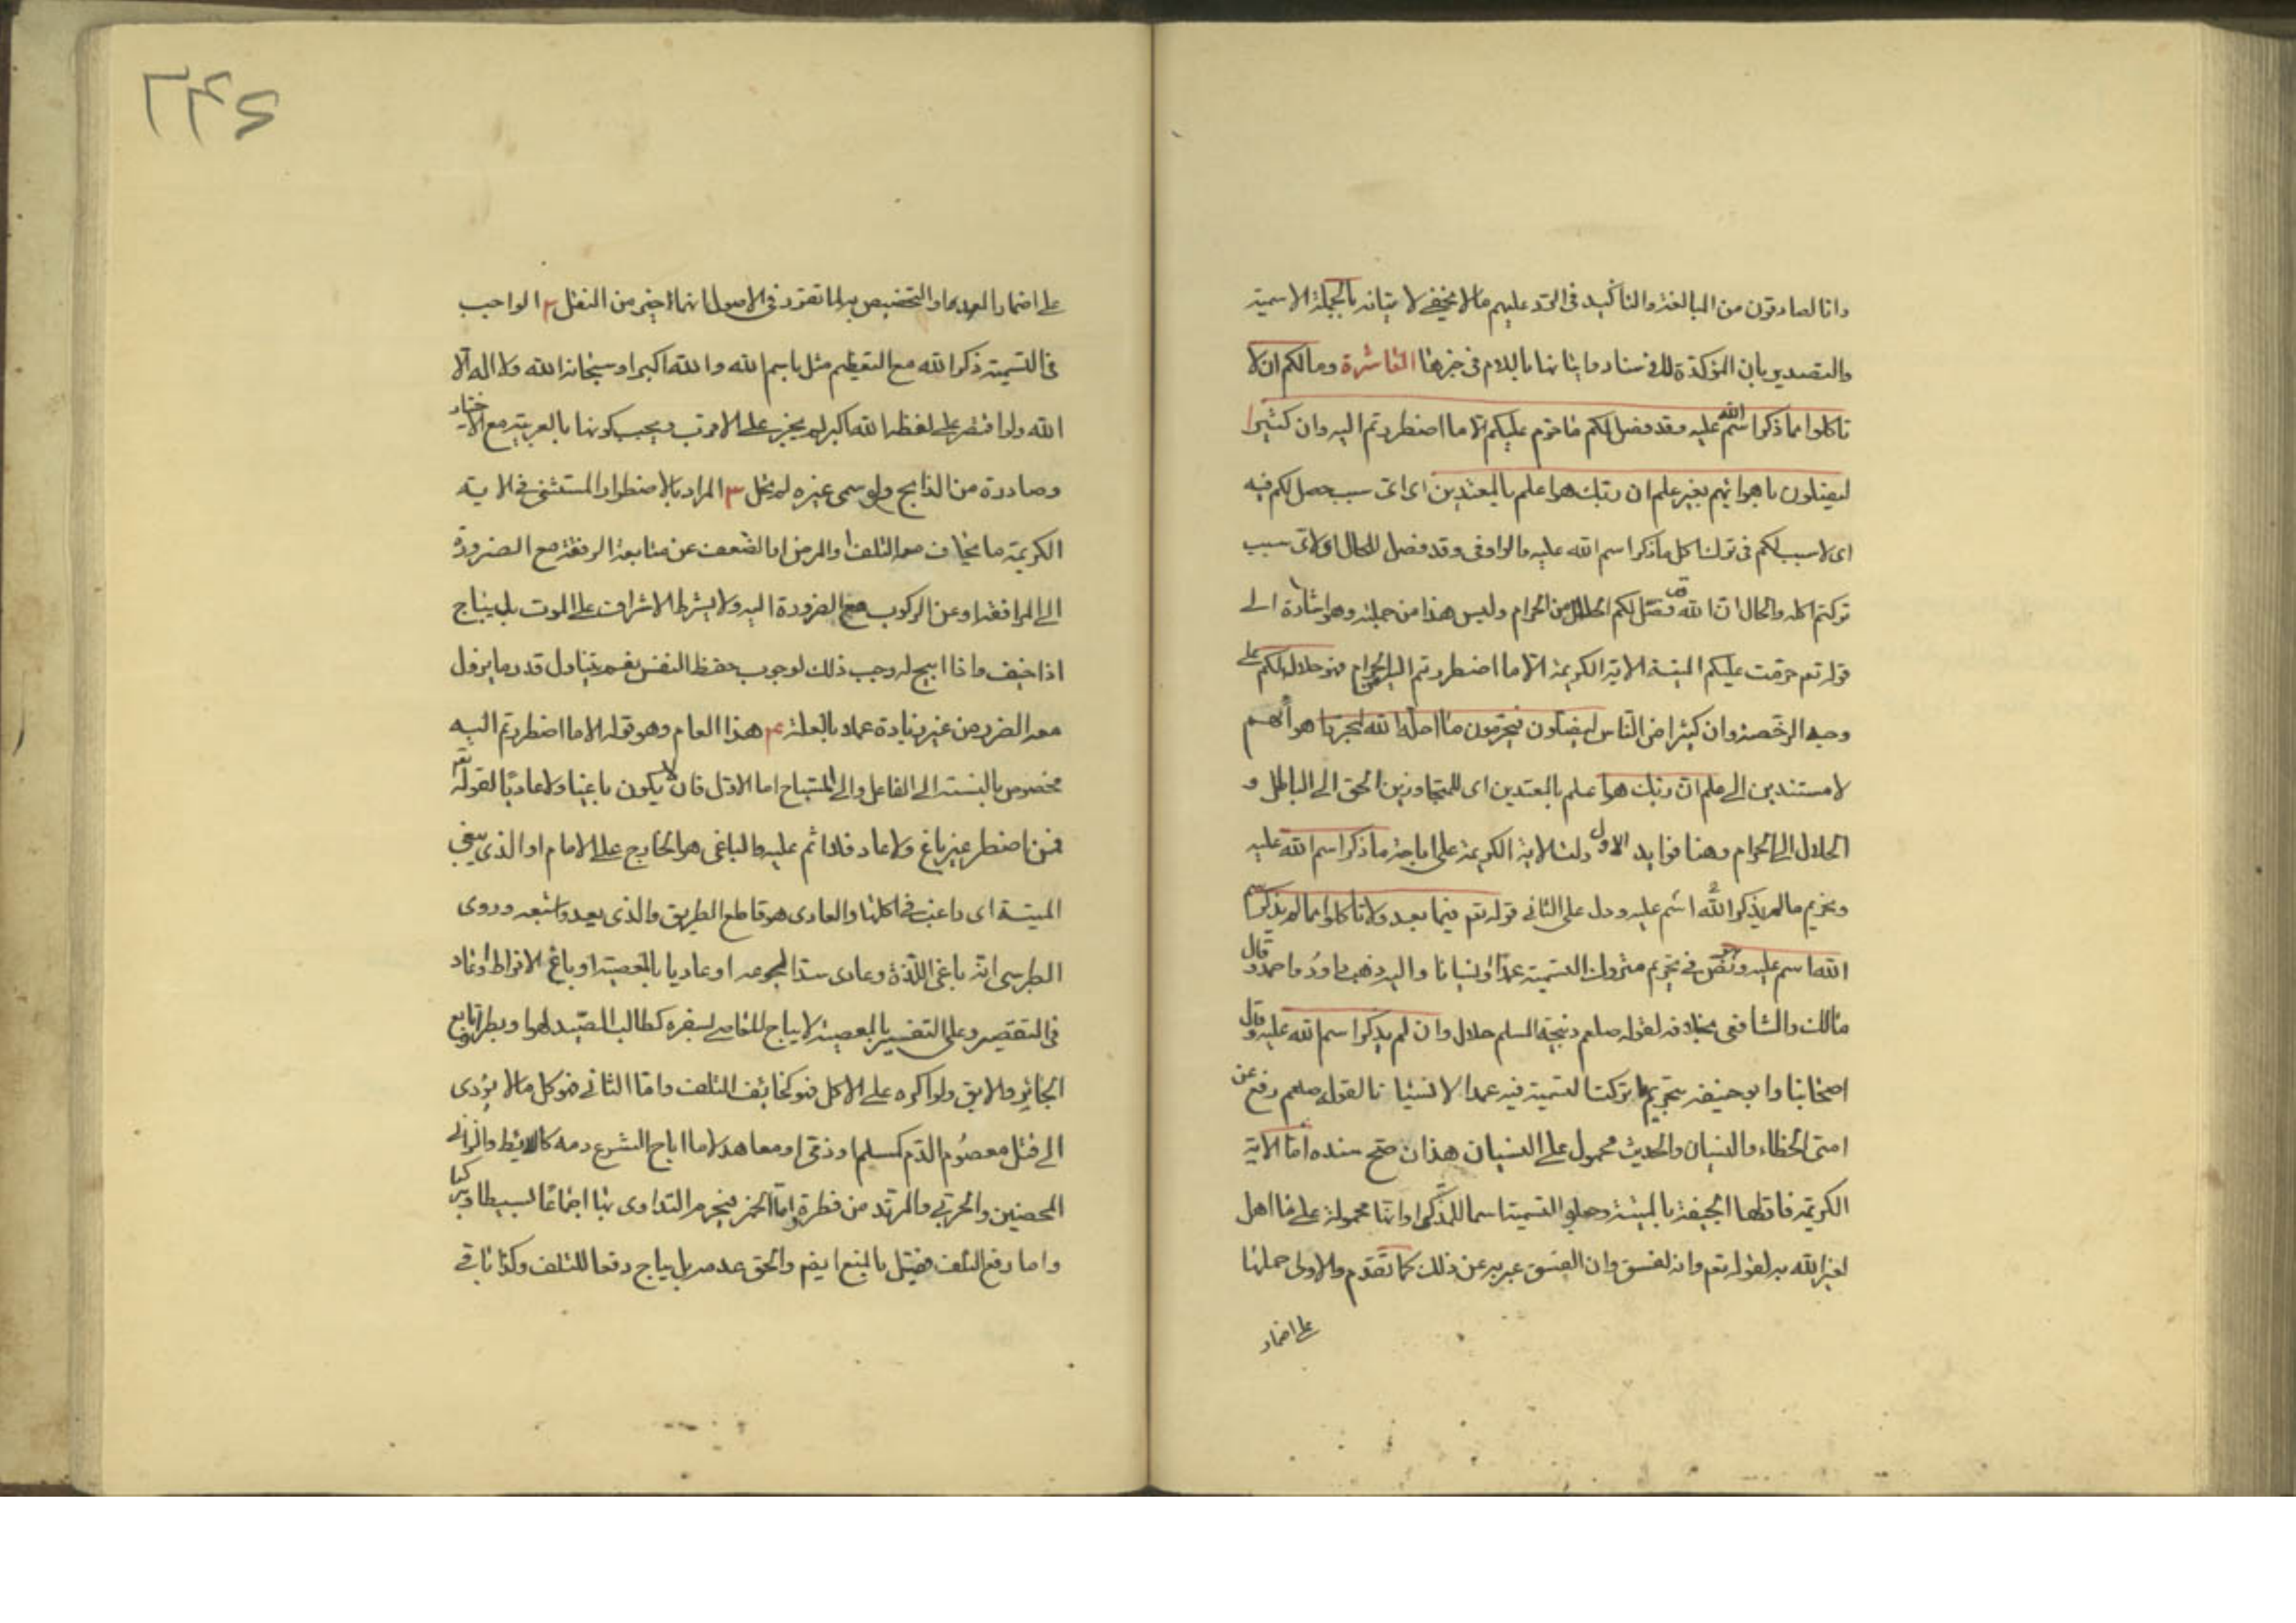 وانا لصادقون من المبالغة والتاكيد فى الرد عليهم مالا يخفى لا تيانه بالجملة الاسمية
والتصدير بان المؤكدة للاسناد واتيانها باللام فى خبرها العاشرة ومالكم ان لا
تاكلوا مما ذكر اسم الله عليه وقد فصل لكم ما حرم عليكم الا ما اضطررتم اليه وان كثيرا
ليضلون باهوائهم بغير علم ان ربك هو اعلم بالمعتدين اى اى سبب حصل لكم فيه
اى لا سبب لكم فى ترك اكل ما ذكر اسم الله عليه والواو فى وقد فصل للحال اى لاى سبب
تركتم اكله والحال ان الله قد فصل لكم الحلال من الحرام وليس هذا من جملته وهو اشارة الى
قوله تعم حرمت عليكم الميتة الاية الكريمة الا ما اضطررتم اليه الحرام فهو حلال لكم على
وجه الرخصة وان كثيرا من الناس ليضلون فيحرمون ما احل الله لمجرد اهوائهم
لا مستندين الى علم ان ربك هو اعلم بالمعتدين اى للمتجاوزين الحق الى الباطل و
الحلال الى الحرام وهنا فوايد الاول دلت الاية الكريمة على اباحة ما ذكر اسم الله عليه
وتحريم مالم يذكر الله اسم عليه ودل على الثانى قوله تعم فيما بعد ولا تاكلوا مما لم يذكر اسم
الله اسم عليه وهو نص فى تحريم متروك التسمية عمدا او نسيانا واليه ذهب داود واحمد وقال
مالك والشافعى بخلافه لقوله صلعم ذبيحة المسلم حلال وان لم يذكر اسم الله عليه وقال
اصحابنا وابو حنيفة بتحريم ما تركت التسمية فيه عمدا لا نسيانا لقوله صلعم رفع عن
امتى الخطاء والنسيان والحديث محمول على النسيان هذا ان صح سنده اما الاية
الكريمة فاولها الحنيفة بالميتة وجعلوا التسمية اسما للذكى او انها محمولة على ما اهل
لغير الله به لقوله تعم وانه لفسق وان الفسق عبر به عن ذلك كما تقدم والاولى حملها
على اضمار
على اضمار العمد او التخصيص به لما تقرر فى الاصول انهما خير من النقل ٢ الواجب
فى التسمية ذكر الله مع التعظيم مثل باسم الله والله اكبر او سبحان الله ولا اله الا
الله ولو اقتصر على لفظه الله اكبر لم يجز على الاقرب ويجب كونها بالعربية مع الاختيار
وصادرة من الذابح ولو سمى غيره لم يحل ٣ المراد بالاضطرار المستثنى فى الاية
الكريمة ما يخاف معه التلف او المرض او الضعف عن متابعة الرفقة مع الضرورة
الى المرافقة او عن الركوب مع الضرورة اليه ولا يشترط الاشراف على الموت بل يباح
اذا خيف واذا ابيح له وجب ذلك لوجوب حفظ النفس نعم يتناول قدر ما يزول
معه الضرر من غير زيادة عملا بالعلة ٤ هذا العام وهو قوله الا ما اضطررتم اليه
مخصوص بالنسبة الى الفاعل والى المستباح اما الاول فان لا يكون باغيا ولا عاديا لقوله تعم
فمن اضطر غير باغ ولا عاد فلا اثم عليه والباغى هو الخارج على الامام او الذى يبغى
الميتة اى راغب فى اكلها والعادى هو قاطع الطريق والذى يعدو شبعه وروى
الطبرسى انه باغى اللذة وعادى سد الجوعه او عاديا بالمعصية او باغ الافراط او عاد
فى التقصير وعلى التفسير بالمعصية لا يباح للعاصى بسفره كطالب الصيد لهوا وبطرا وتابع
الجائر والابق ولو اكره على الاكل فهو كخائف التلف واما الثانى فهو كل مالا يؤدى
الى قتل معصوم الدم كمسلم او ذمى او معاهد لا ما اباح الشرع دمه كاللايط والزانى
المحصنين والحربى والمرتد من فطرة واما الخمر فيحرم التداوى بها اجماعا بسيطا ومركبا
واما دفع التلف فقيل بالمنع ايضم والحق عدمه بل يباح دفعا للتلف وكذا باقى
٢٤٥